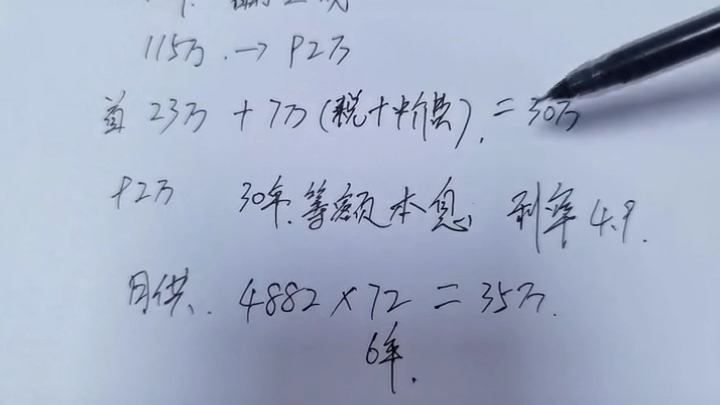 115万 → 92万
首 23万 + 7万 (税+中介费) = 30万
92万 30年 等额本息 利率 4.9.
月供 4882 × 72 = 35万.
6年.